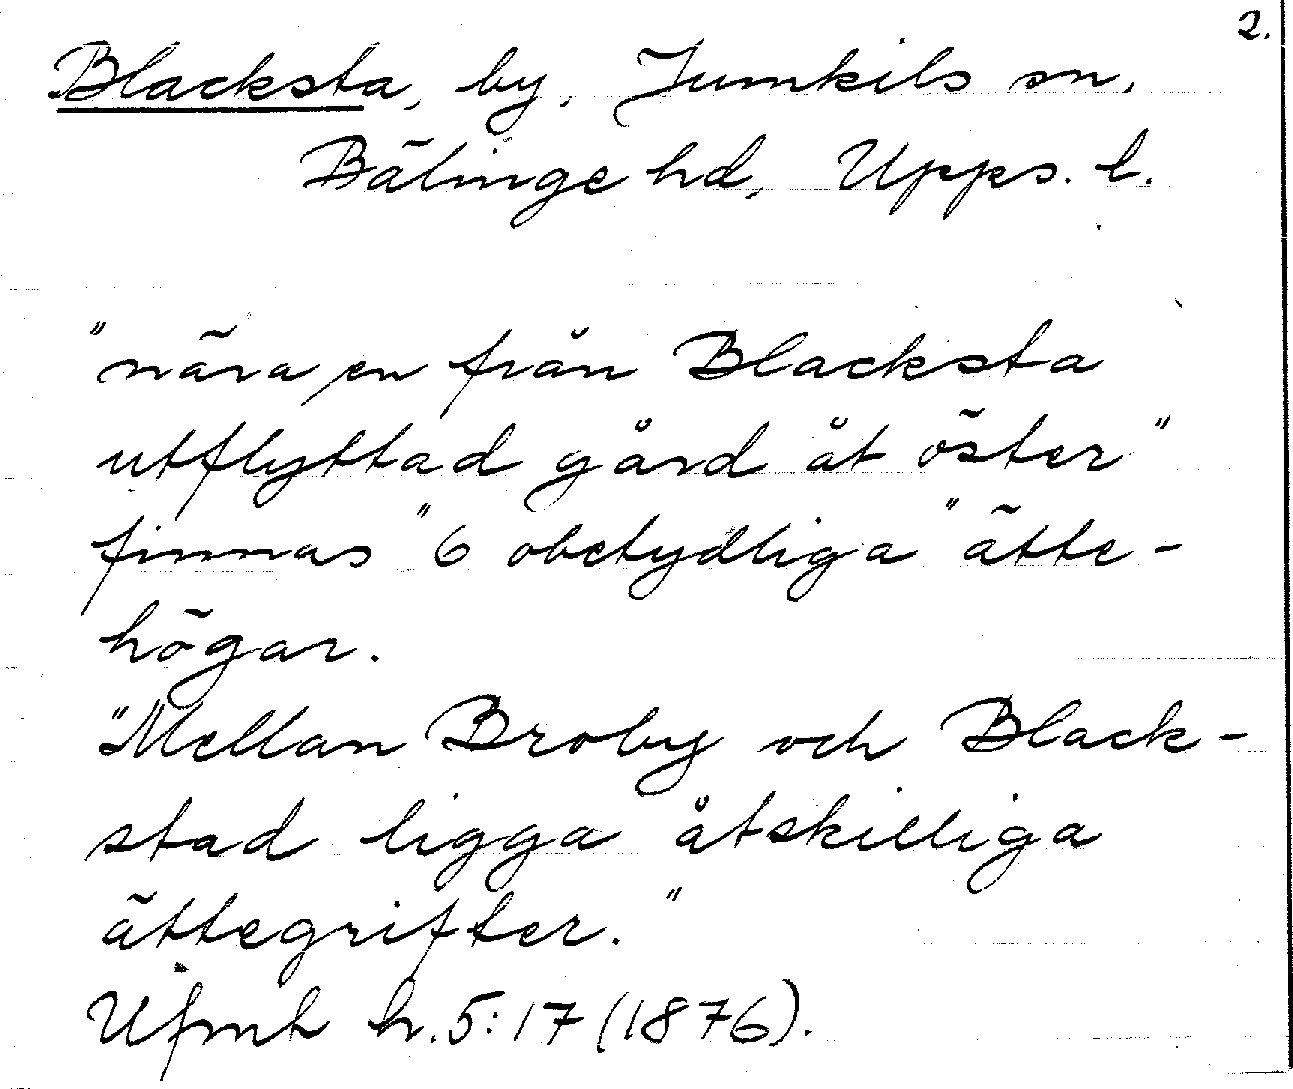 2.
Blacksta, by, Jumkils sn,
Bälinge hd, Upps. l.
"nära en från Blacksta
utflyttad gård åt öster"
finnas "6 obetydliga" ätte-
högar.
"Mellan Broby och Black-
stad ligga åtskilliga
ättegrifter."
Ufmh h.5:17 (1876).